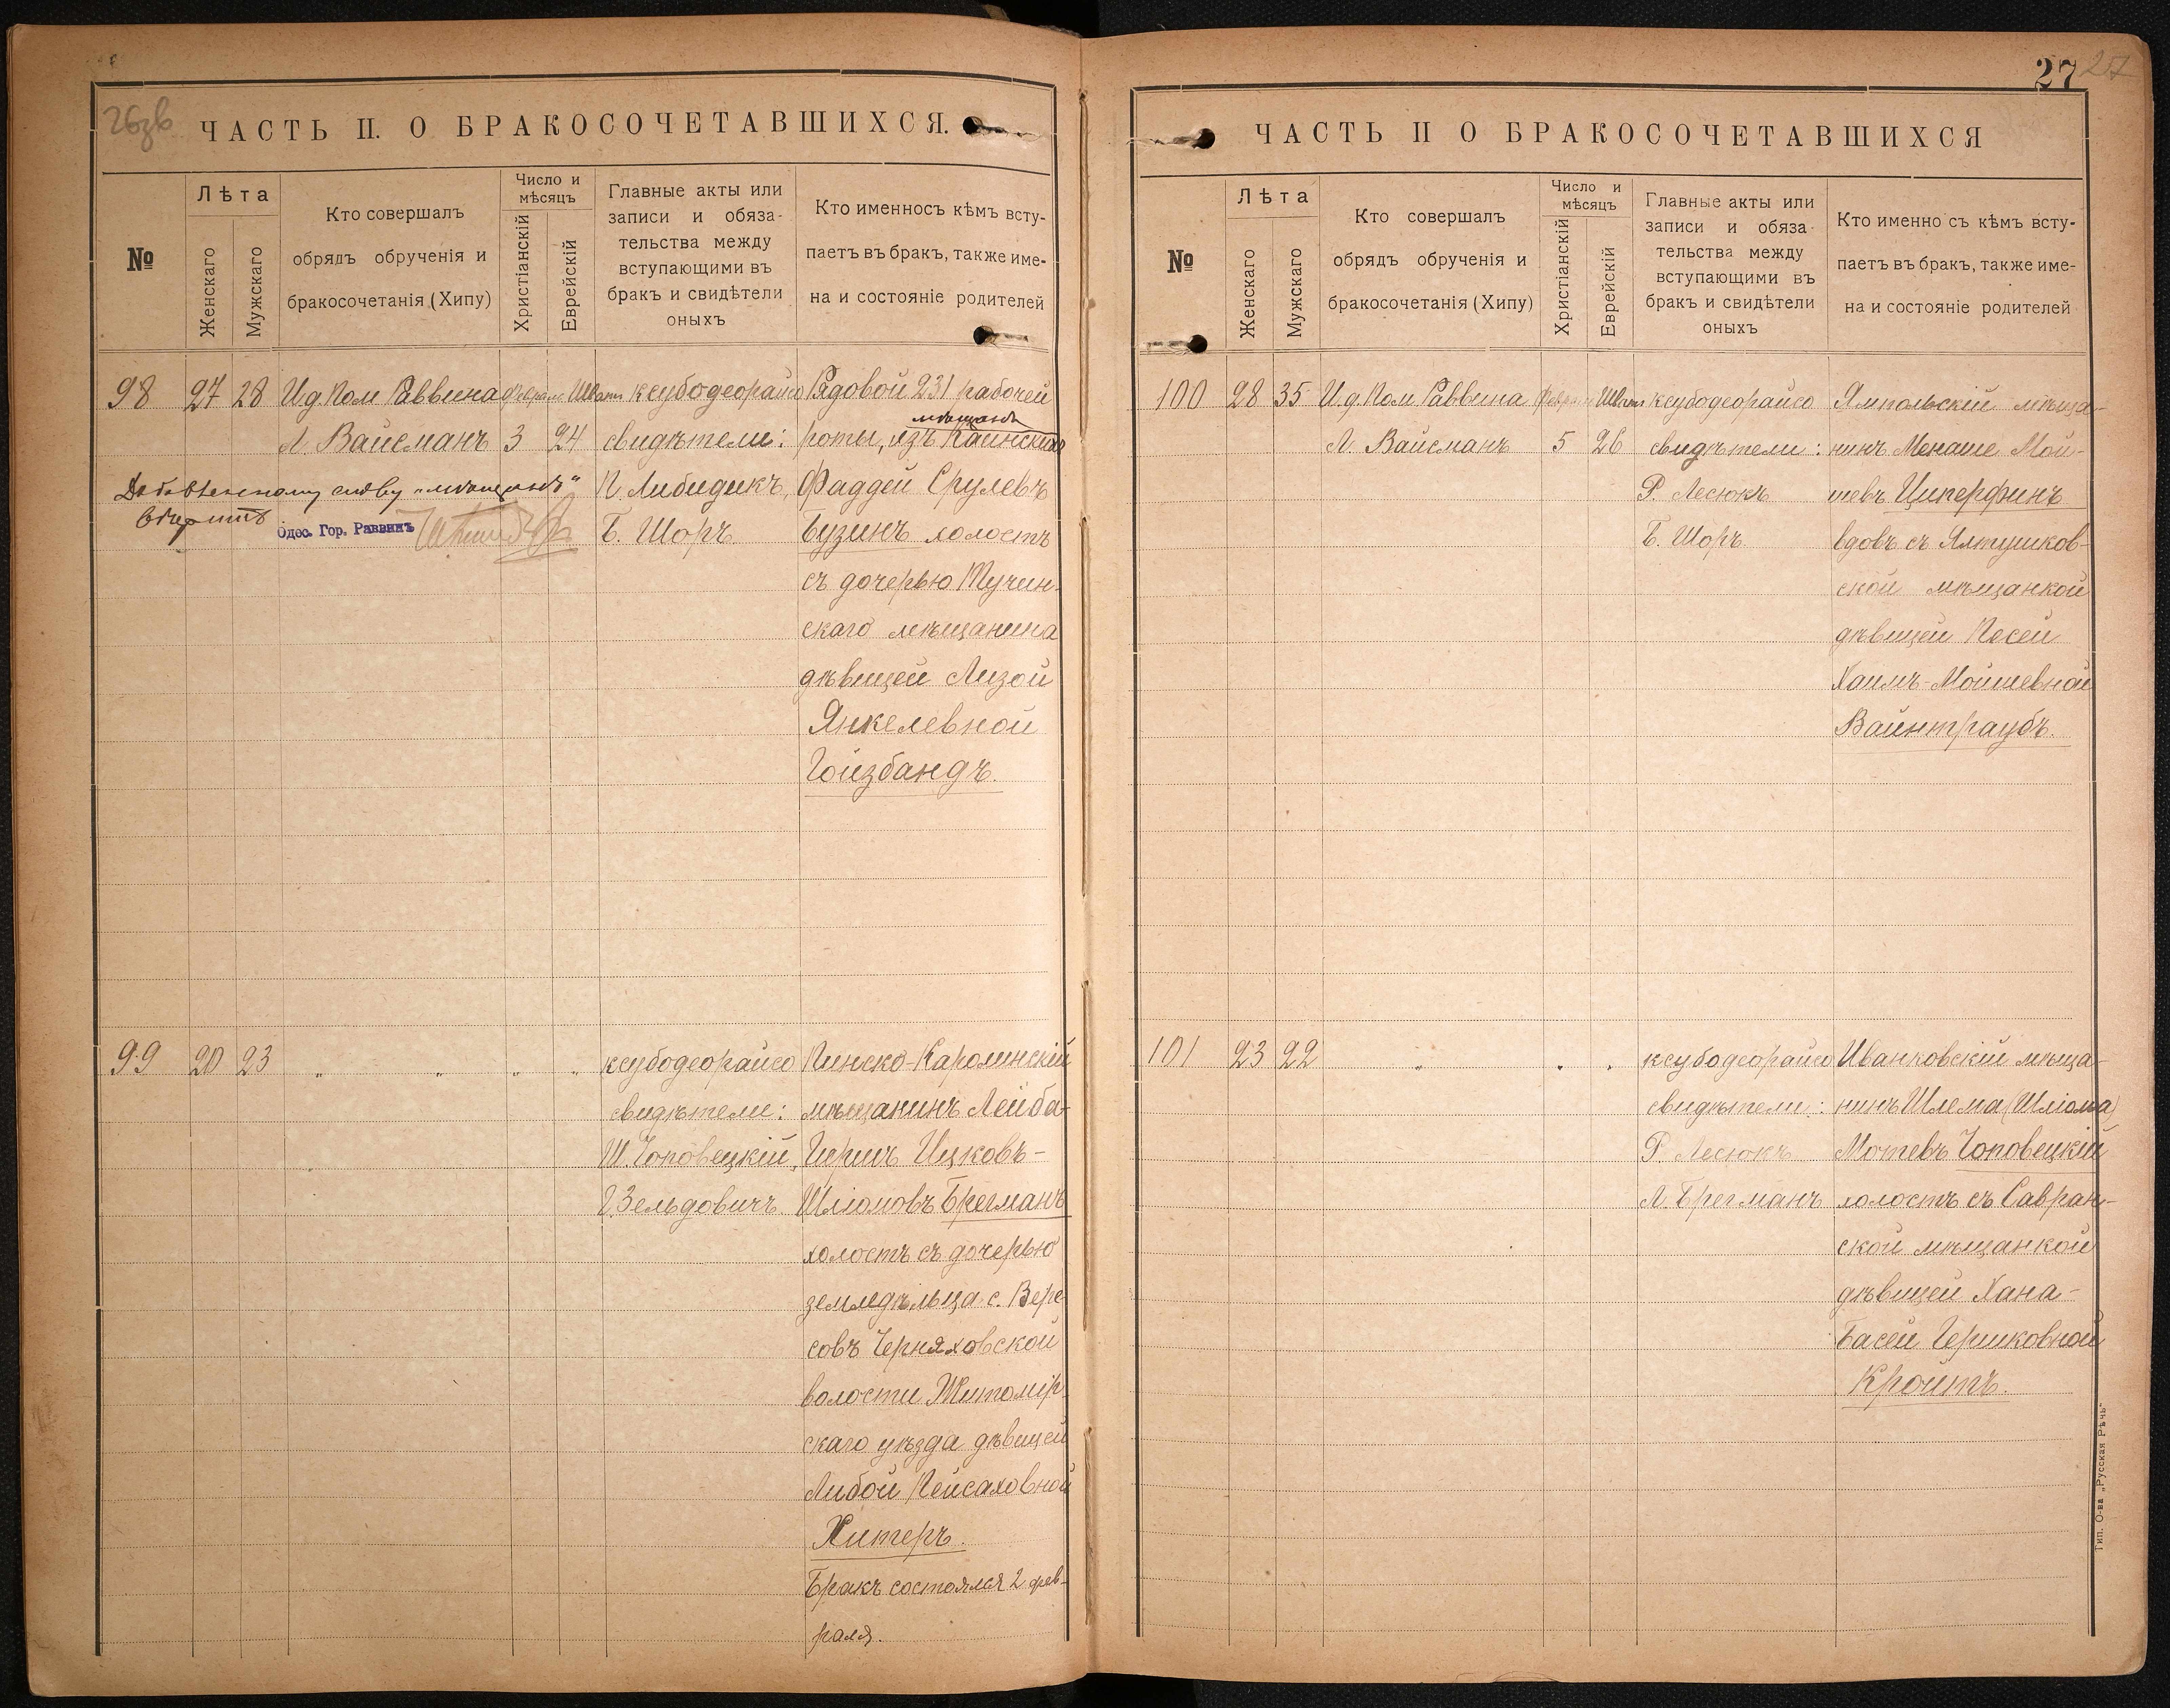 26зв
ЧАСТЬ II. О БРАКОСОЧЕТАВШИХСЯ.
№
Лѣта
Женскаго
Мужскаго
Кто совершалъ
обрядъ обрученія и
бракосочетанія (Хипу)
Число и
мѣсяцъ
Христіанскій
Еврейскій
Главные акты или
записи и обяза-
тельства между
вступающими въ
бракъ и свидѣтели
оныхъ
Кто именносъ кѣмъ всту-
паетъ въ бракъ, также име-
на и состояніе родителей
98 27 28 И.д. Пом. Раввина Февраля Шватъ ксубодеорайсо Рядовой 231 рабочей
мѣщанъ
Л. Вайсманъ 3 24 свидѣтели: роты, изъ Каинскихъ
Добавленному слову „мѣщанъ“ П. Либидикъ, Фаддей Срулевъ
вѣрить Одес. Гор. Раввинъ Б. Шоръ Бузинъ холостъ
съ дочерью Тучин-
скаго мѣщанина
дѣвицей Лизой
Янкелевной
Гойзбандъ.
99 20 23 „ „ „ „ ксубодеорайсо Пинско-Каролинскій
свидѣтели: мѣщанинъ Лейба-
Ш. Чоповецкій, Гиршъ Ицковъ-
Г. Зельдовичъ Шліомовъ Брегманъ
холостъ съ дочерью
земледѣльца с. Вере-
совъ Черняховской
волости Житомір-
скаго уѣзда дѣвицей
Либой Пейсаховной
Хитеръ.
Бракъ состоялся 2 фев-
раля.
27 27
ЧАСТЬ II О БРАКОСОЧЕТАВШИХСЯ
№
Лѣта
Женскаго
Мужскаго
Кто совершалъ
обрядъ обрученія и
бракосочетанія (Хипу)
Число и
мѣсяцъ
Христіанскій
Еврейскій
Главные акты или
записи и обяза-
тельства между
вступающими въ
бракъ и свидѣтели
оныхъ
Кто именно съ кѣмъ всту-
паетъ въ бракъ, также име-
на и состояніе родителей
100 28 35 И.д. Пом. Раввина Февраля Шватъ ксубодеорайсо Ямпольскій мѣща-
Л. Вайсманъ 5 26 свидѣтели: нинъ Менаше Мой-
Р. Лесюкъ шевъ Циперфинъ
Б. Шоръ. вдовъ съ Ялтушков-
ской мѣщанкой
дѣвицей Песей
Хаимъ-Мойшевной
Вайнтраубъ.
101 23 22 „ „ „ ксубодеорайсо Иванковскій мѣща-
свидѣтели: нинъ Шлема (Шліома)
Р. Лесюкъ Мотевъ Чоповецкій
Л. Брегманъ холостъ съ Савран-
ской мѣщанкой
дѣвицей Хана-
Басей Гершковной
Кройтъ.
Тип. О-ва „Русская Рѣчь“